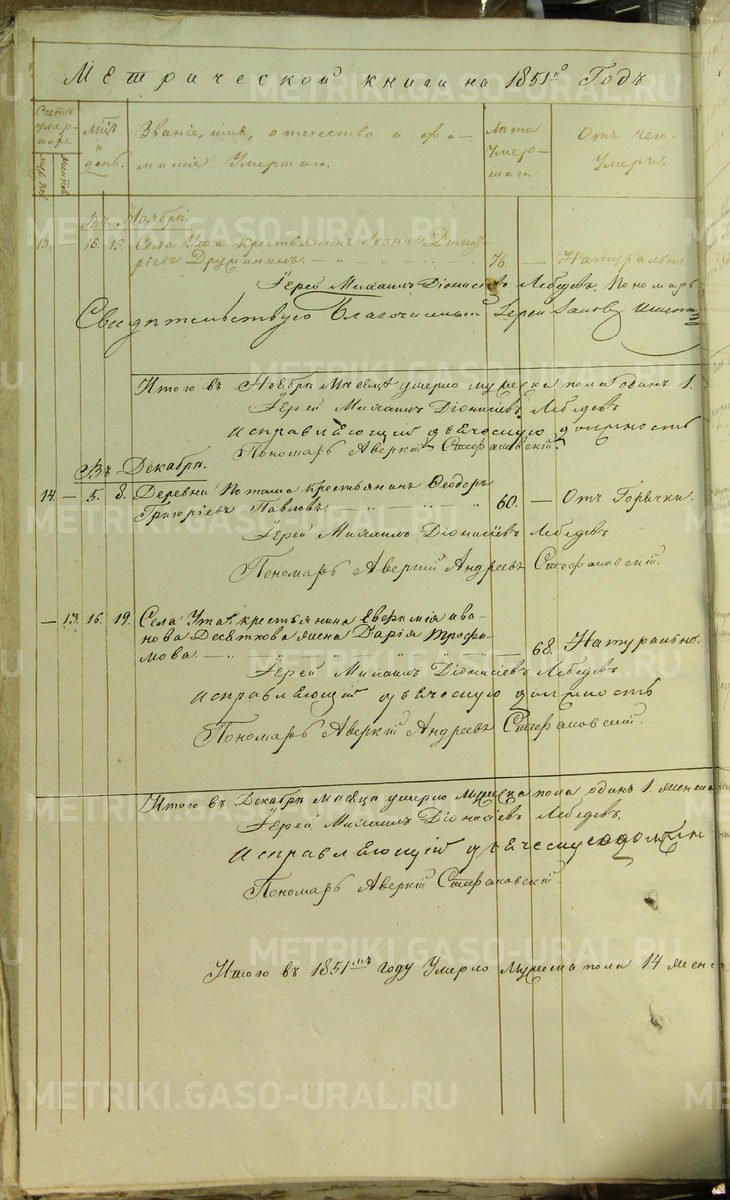 Метрической книги на 1851й Годъ
Счетъ умер-шихъ. муж. пол. женска
Мѣсяцъ и день.
Званіе, имя, отечество и фа-
милія Умершаго.
Лѣта Умер-шаго.
Отъ чего Умеръ.
Въ Ноябрѣ.
13. — 16. 19. Села крестьянинъ Іоаннъ Димит
ріевъ Дружининъ. 76. — Натурально.
Іерей Михаилъ Діонисіевъ Лебедевъ, Пономарь
Свидѣтельствую Благочинный Іерей
Итого въ Ноябрѣ Месяцѣ умерло мужеска пола одинъ 1.
Іерей Михаилъ Діонисіевъ Лебедевъ
Исправляющій дьяческую должность
Пономарь Аверкій Стефановскій.
Въ Декабрѣ.
14. — 5. 8. Деревни Поташа крестьянинъ Ѳеодоръ
Григоріевъ Павловъ 60. — Отъ Горячки.
Іерей Михаилъ Діонисіевъ Лебедевъ
Пономарь Аверкій Андреевъ Стефановскій.
— 13. 16. 19. Села крестьянина Евфимія Ива-
нова Десяткова жена Дарія Трофи-
мова. — 68. Натурально.
Іерей Михаилъ Діонисіевъ Лебедевъ
Исправляющій дьяческую должность
Пономарь Аверкій Андреевъ Стефановскій.
Итого въ Декабрѣ месяцѣ умерло Мужеска пола одинъ 1. женска
Іерей Михаилъ Діонисіевъ Лебедевъ.
Исправляющій дьяческую должн
Пономарь Аверкій Стефановскій.
Итого въ 1851мъ году Умерло Мужеска пола 14 женс
METRIKI.GASO-URAL.RU